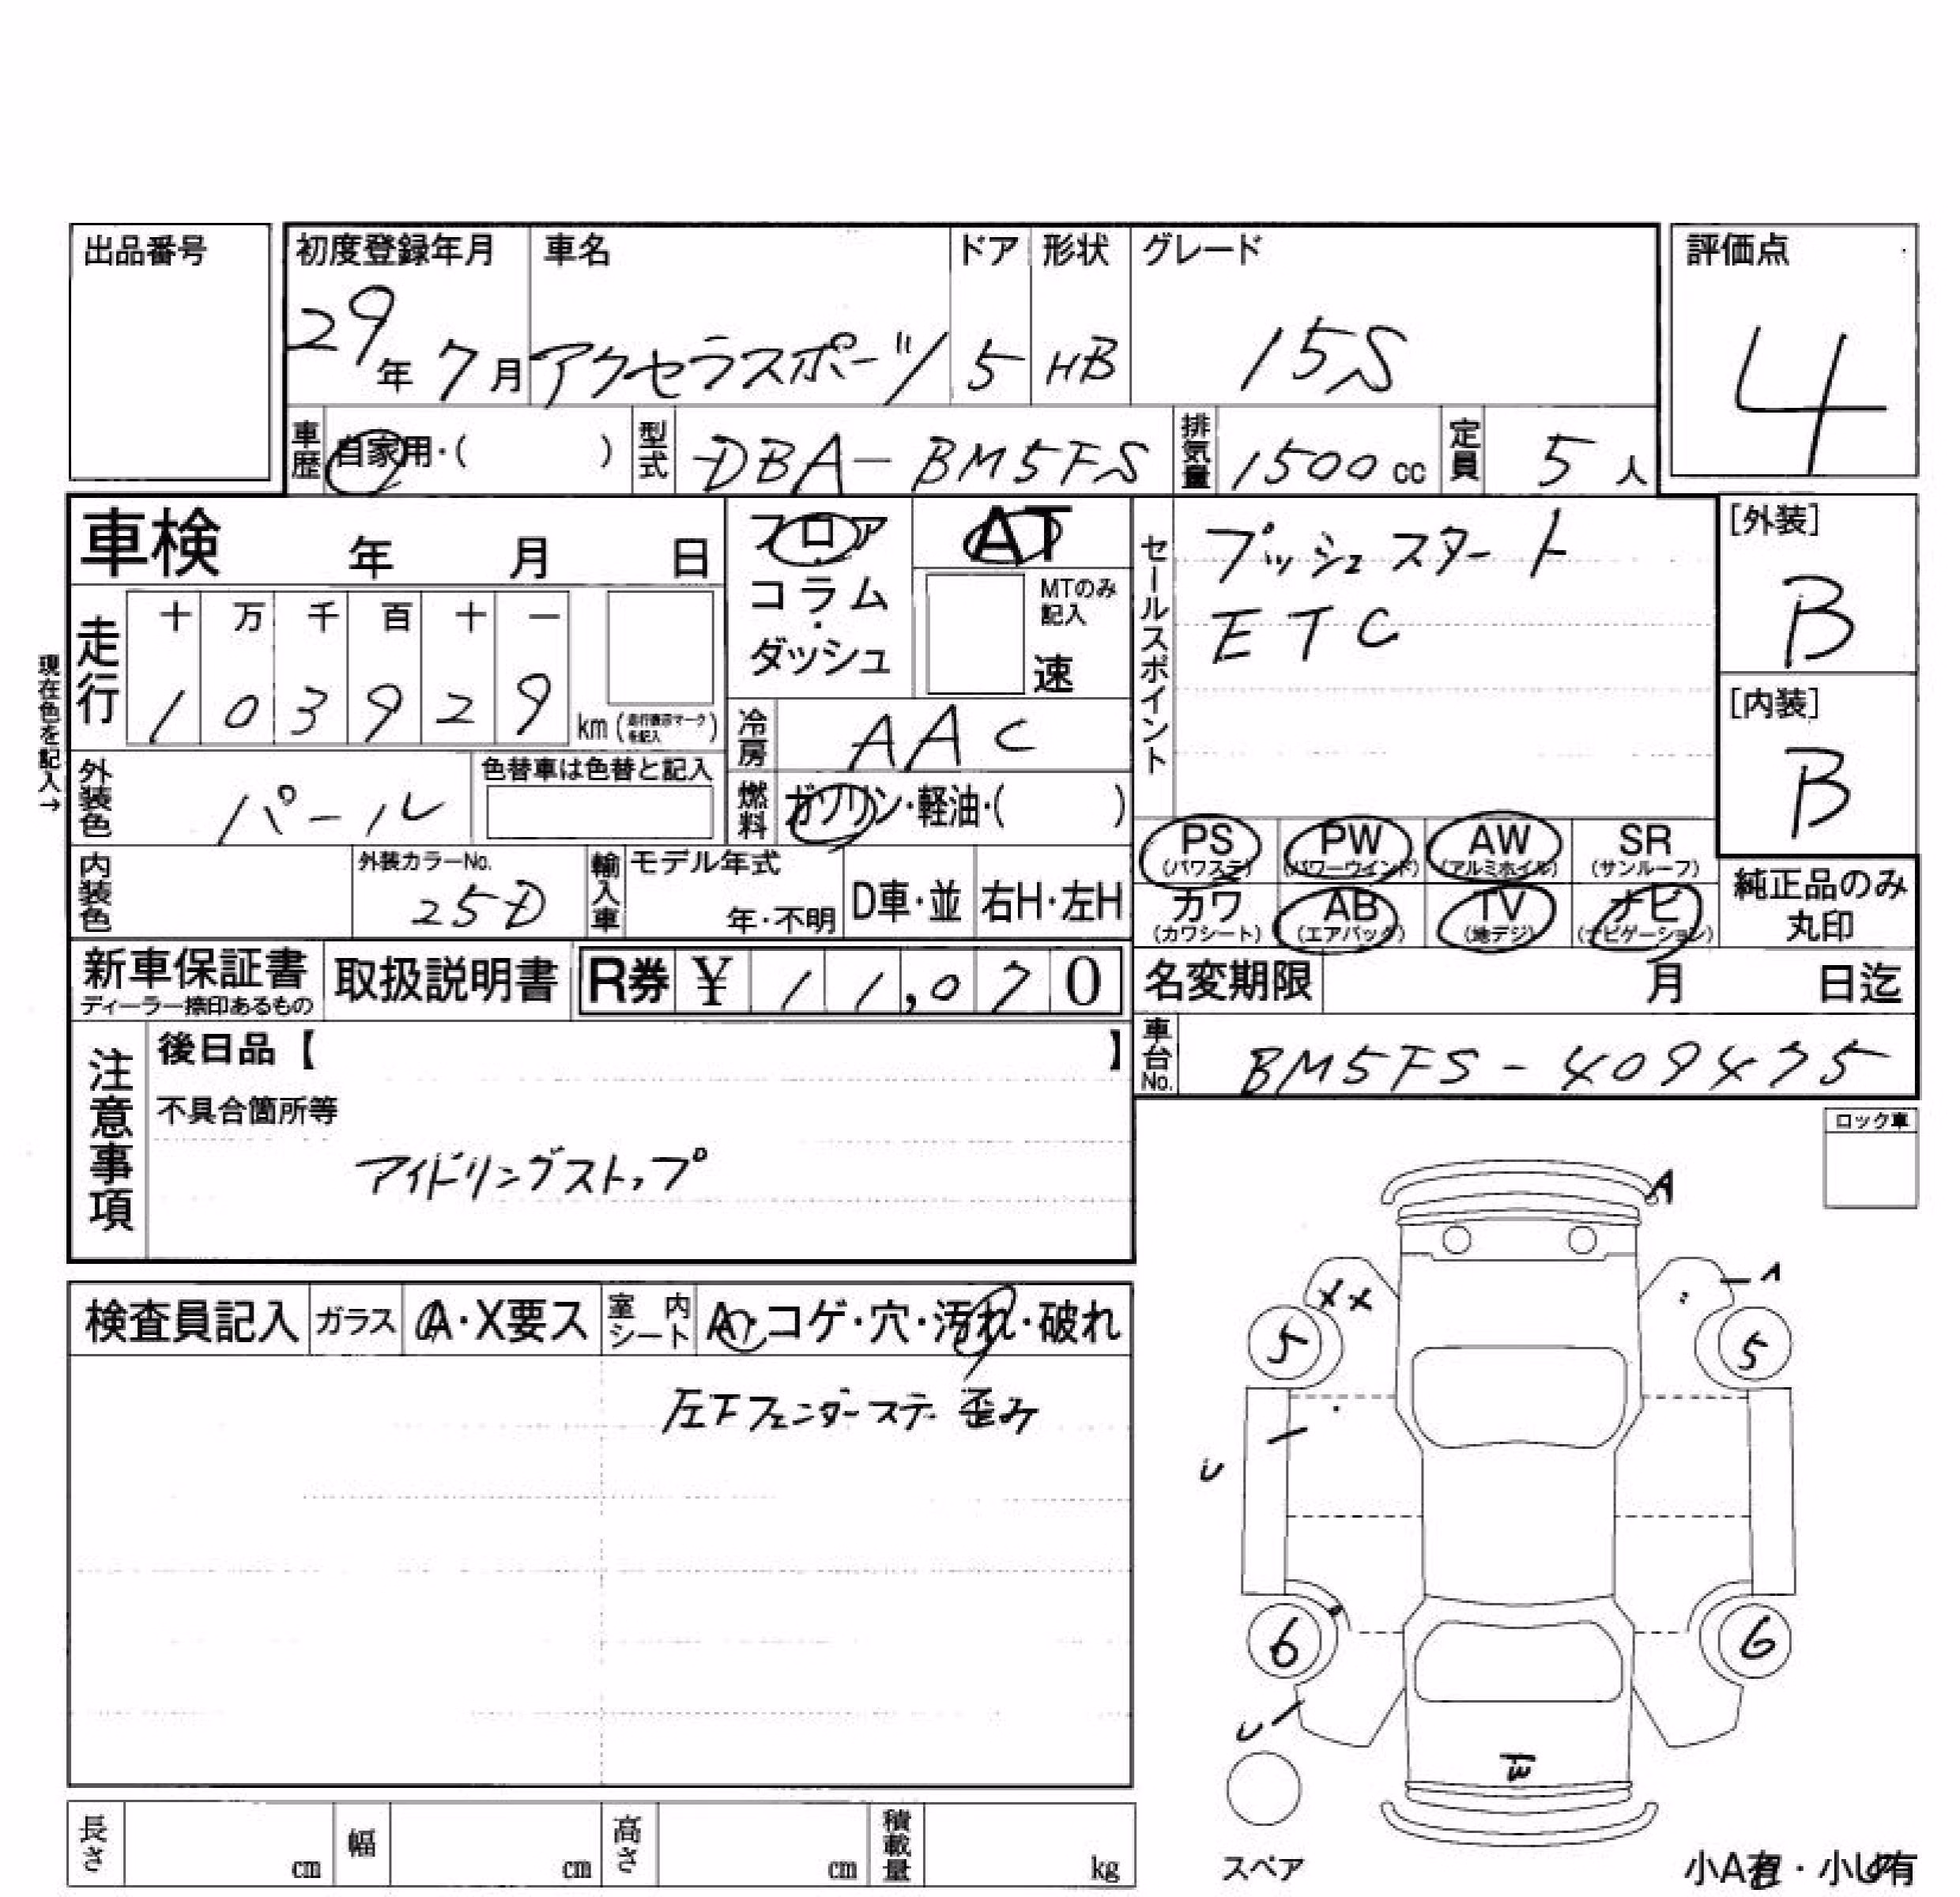 出品番号
初度登録年月 車名 ドア 形状 グレード 評価点
29年 7月 アクセラスポーツ 5 HB 15S 4
車歴 自家用・( ) 型式 DBA-BM5FS 排気量 1500cc 定員 5人
車検 年 月 日
フロア・コラム・ダッシュ
AT
MTのみ記入
速
セールスポイント
プッシュスタート
ETC
[外装]
B
[内装]
B
現在色を記入→
走行 十 万 千 百 十 一
1 0 3 9 2 9 km (走行表示マークを記入)
冷房 AAC
外装色 パール 色替車は色替と記入
燃料 ガソリン・軽油・( )
PS (パワステ) PW (パワーウインド) AW (アルミホイル) SR (サンルーフ)
カワ (カワシート) AB (エアバック) TV (地デジ) ナビ (ナビゲーション)
純正品のみ丸印
内装色 外装カラーNo. 25D 輸入車 モデル年式 年・不明 D車・並 右H・左H
新車保証書 ディーラー捺印あるもの 取扱説明書 R券 ¥ 11,070
名変期限 月 日迄
車台No. BM5FS-409475
注意事項
後日品【 】
不具合箇所等
アイドリングストップ
ロック車
検査員記入 ガラス A・X要ス 室内シート A・コゲ・穴・汚れ・破れ
左Fフェンダーステー歪み
A
A
X X
5 5
U
6 6
U
スペア
長さ cm 幅 cm 高さ cm 積載量 kg
小A有・小U有